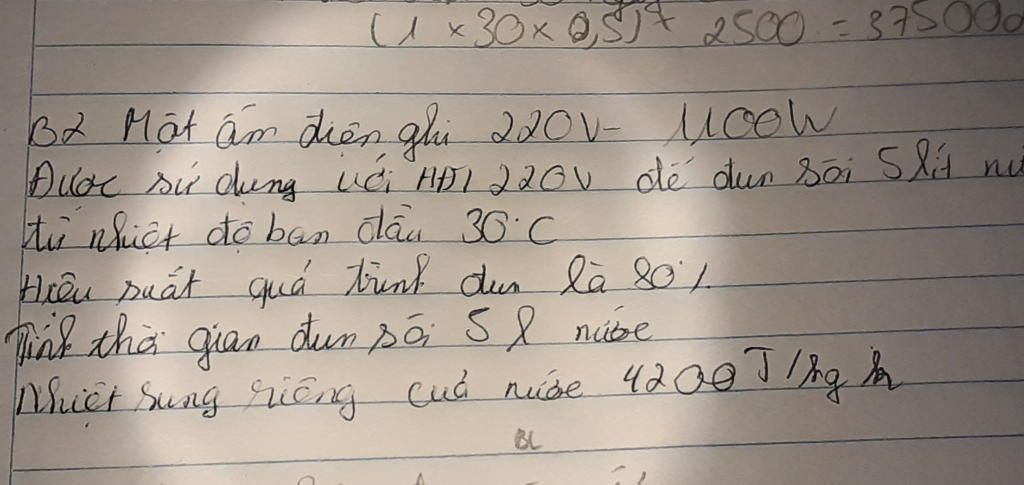 (1 × 30 × 0,5) × 2500 = 375000
B2 Một ấm điện ghi 220V- 1100W
Được sử dụng với HĐT 220V để đun sôi 5 lít
từ nhiệt độ ban đầu 30°C
Hiệu suất quá trình đun là 80%
Tính thời gian đun sôi 5 l nước
Nhiệt dung riêng của nước 4200J/kg
BL